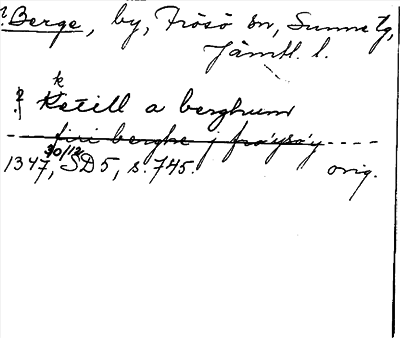 Berge, by, Frösö sn, Sunne tg,
Jämtl. l.
k
? Ketill a berghum
--- firi berghe j frøysøy ----
30/12
1347, SD 5, s. 745. orig.